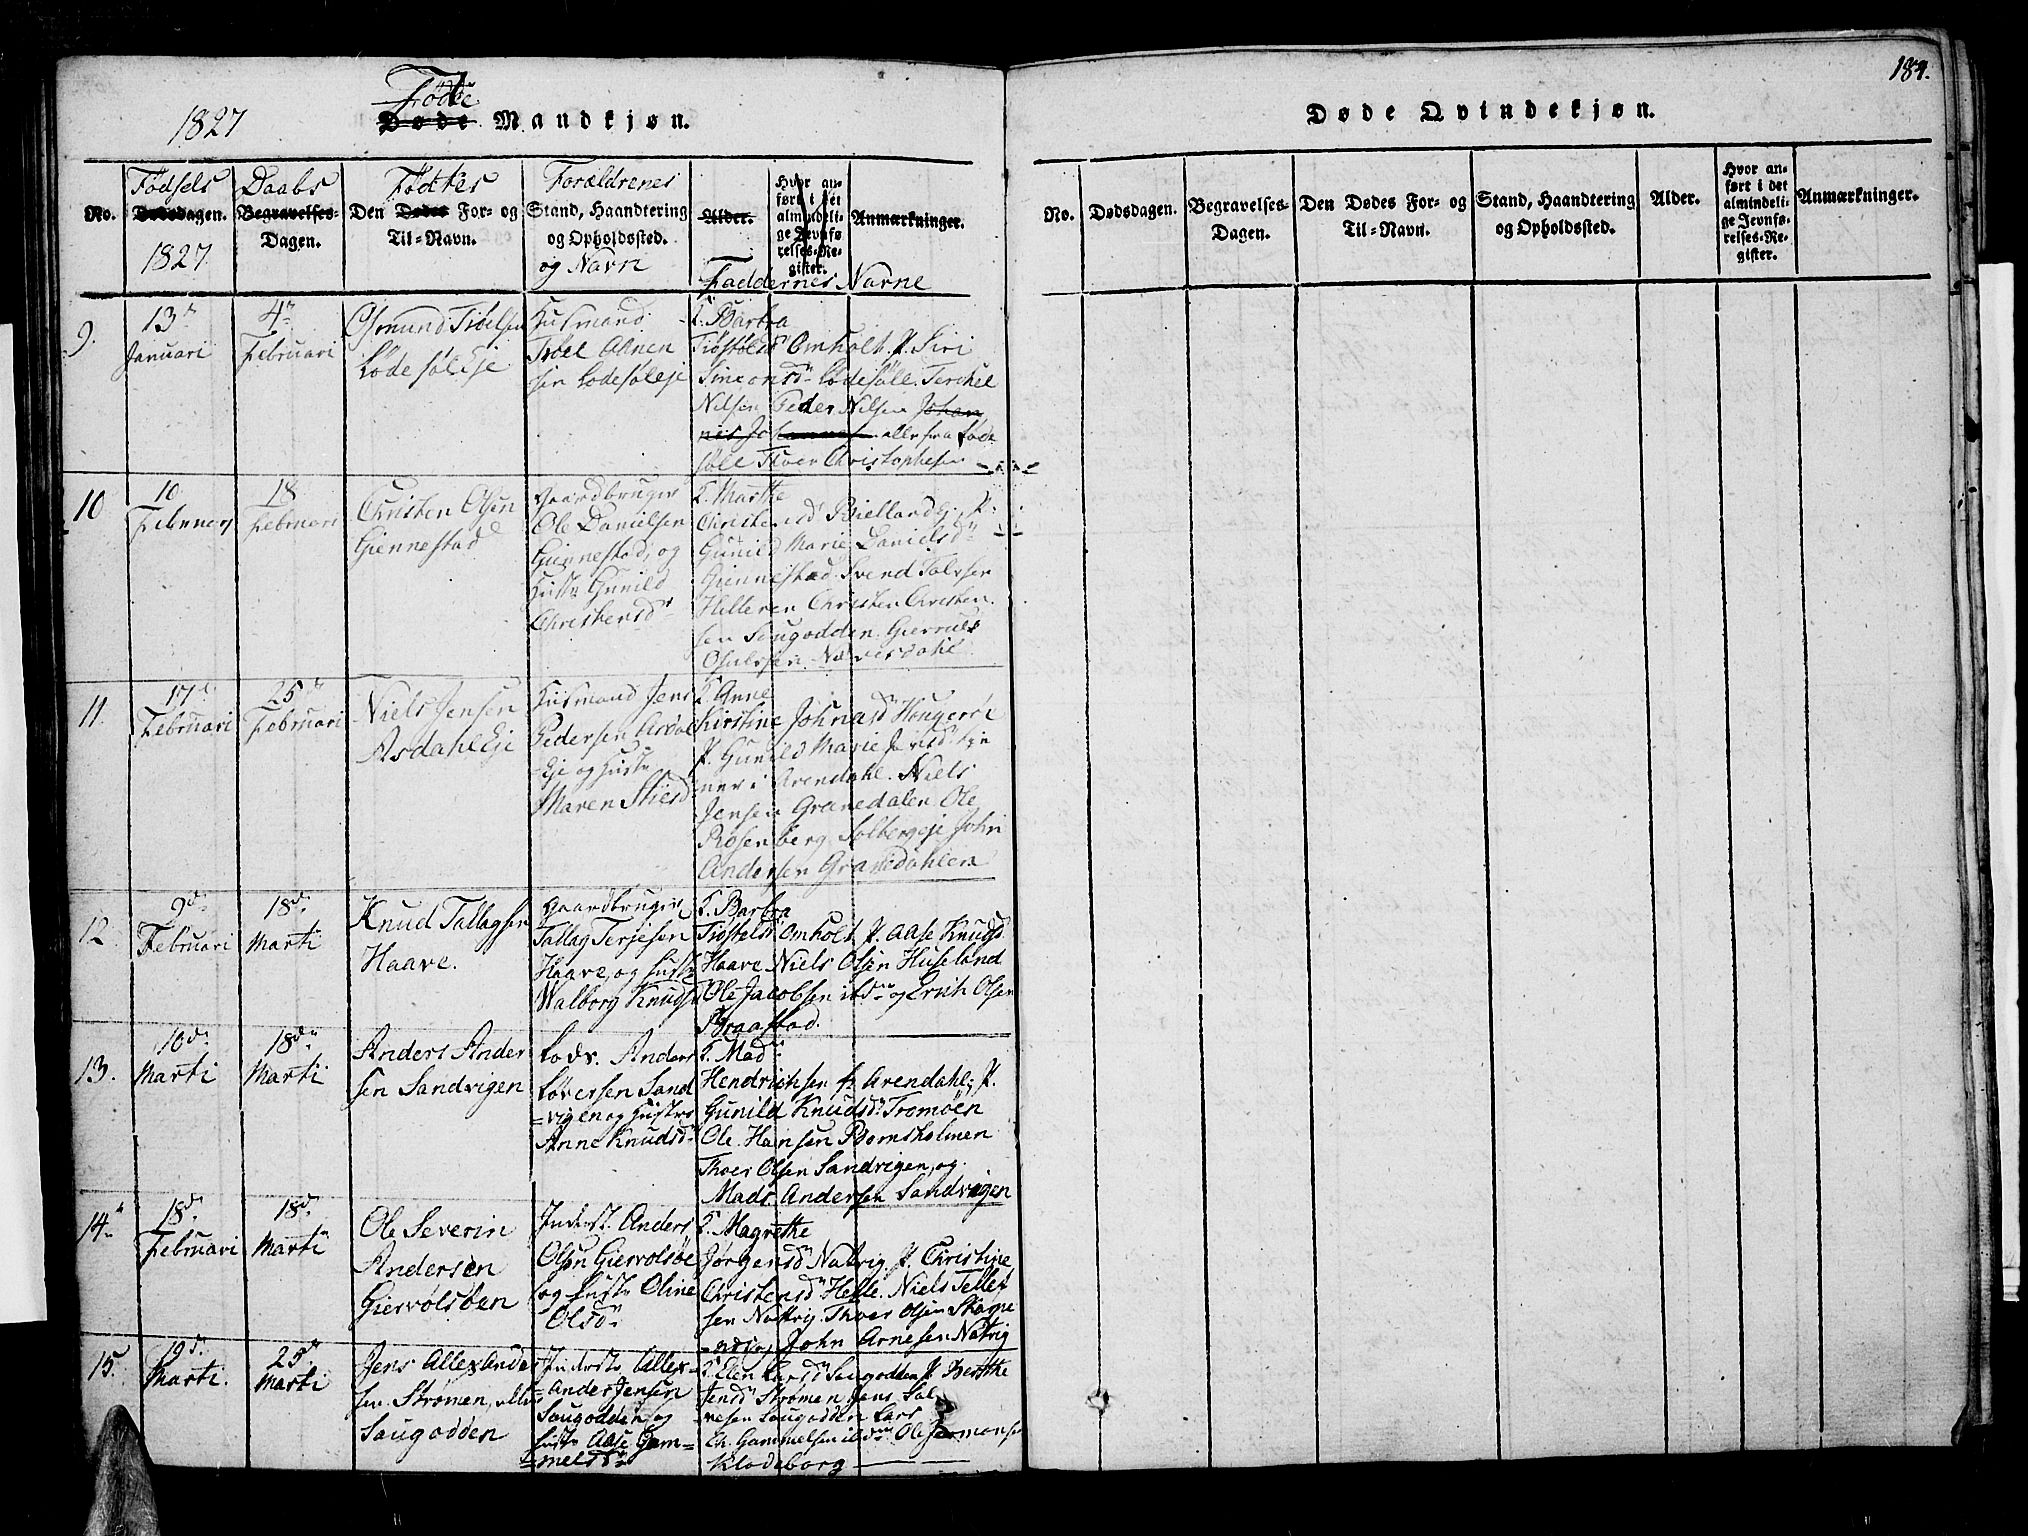 184.
1827
Fødte
Døde Mandkjøn.
No.
Fødsels
Dødsdagen.
1827
Daabs
Begravelses-
Dagen.
Fødtes
Den Dødes For- og
Til-Navn.
Forældrenes
Stand, Haandtering
og Opholdssted.
og Navn
Alder.
Hvor an-
ført i det
almindeli-
ge Jevnfø-
relses-Re-
gister.
Anmærkninger.
Faddernes Navne
9.
13d
Januari
4de
Februari
Osmund Troelsen
Lødesøl Eje
Husmand
Troel Ahnen
sen Lødesøleje
F. Barbra
Tiøstølsd Omholt P. Siri
Simonsd Lødesøll. Terchel
Nilsen Peder Nilsen Johan
nes Johannes alle fra Løde
søll Thoer Christophersen
10
10
Februari
18
Februari
Christen Olsen
Giennestad
Gaardbruger
Ole Danielsen
Giennestad, og
Hustr Gunild
Christensd
F. Marthe
Christensd Biellandg. P.
Gunild Marie Danielsd
Giennestad Svend Talesen
Helleren Christen Christen
sen Saugodden. Gierrul
Osulvsen Næversdahl
11.
17d
Februari
25d
Februari
Niels Jensen
Asdahl Eje
Husmand Jens
Pedersen Asdal
Eje og Hustr
Maren Stiesd
F. Anne
Kirstine Johnasd Hougerse
P. Gunild Marie Jensd tje
ner i Arendahl. Niels
Jensen Granedalen Ole
Rosenberg Solbergeje John
Andersen Granedahlen
12
9d
Februari
18d
Marti
Knud Tallagsen
Haave.
Gaardbruger
Tallag Terjesen
Haave, og Hustr
Walborg Knudsd
F. Barbra
Tiøstelsd Omholt P. Aase Knudsd
Haave Niels Olsen Huseland
Ole Jacobsen ibdm og Erich Olsen
Braastad.
13.
10d
Marti
18d
Marti
Anders Ander
sen Sandvigen
Lods. Anders
Siversen Sand
vigen og Hustro
Anne Knudsd
F. Mad
Hendrichsen fr Arendahl; P.
Gunild Knudsd Tromøen
Ole Hansen Bornsholmen
Thoer Olsen Sandvigen, og
Mads Andersen Sandvigen
14
18d
Februari
18d
Marti
Ole Severin
Andersen
Giervolsøen
Inderst Anders
Olsen Giervolsøe
og Hustr Oline
Olsd
F. Magrethe
Jørgensd Natvig P. Christine
Christensd Helle. Niels Tellef
sen Nattvig Thoer Olsen Skarpe
næs, John Arnesen Natvig
15.
19d
Marti.
25d
Marti
Jens Allexander
sen Strømen, eller
Saugodden
Inderst Allex
ander Jensen
Saugodden og
Hustr Aase Gam
melsd
F. Elen Larsd Saugodden P. Berthe
Jensd Strømen Jens Sal
vesen Saugodden Lars
Ch. Gammelsen ibdm Ole Sermonsen
Klodeborg
Døde Qvindekjøn.
No.
Dødsdagen.
Begravelses-
Dagen.
Den Dødes For- og
Til-Navn.
Stand, Haandtering
og Opholdssted.
Alder.
Hvor an-
ført i det
almindeli-
ge Jevnfø-
relses-Re-
gister.
Anmærkninger.